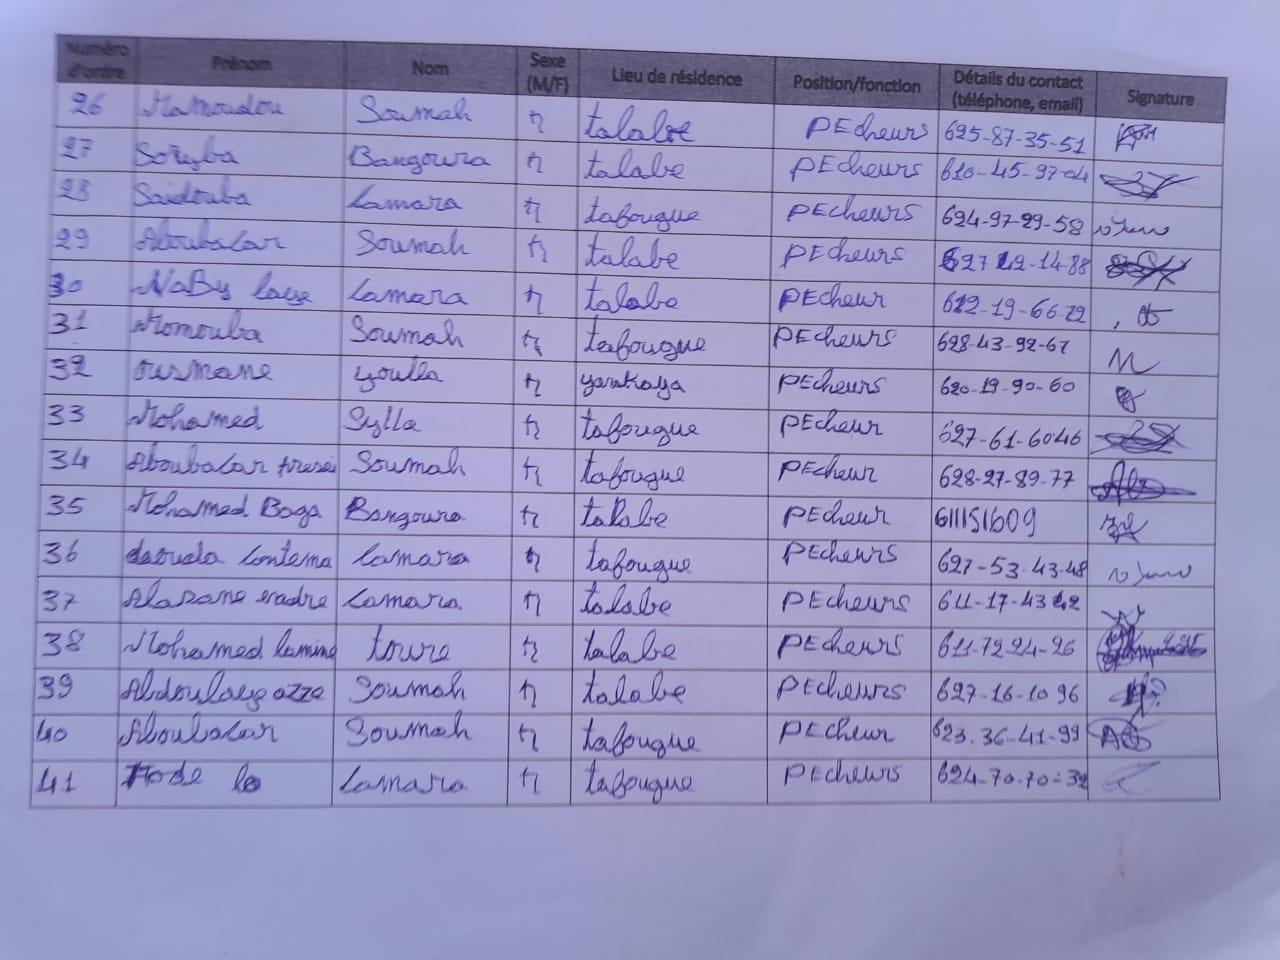 Numéro d'ordre Prénom Nom Sexe (M/F) Lieu de résidence Position/fonction Détails du contact (téléphone, email) Signature
26 Mamoudou Soumah M talabe PEcheurs 625-87-35-51
27 Soryba Bangoura M talabe PEcheurs 610-45-97-04
28 Saidouba Camara M tafougue PEcheurs 624-97-29-58
29 Aboubacar Soumah M talabe PEcheurs
30 NaBy laye Camara M talabe PEcheur 612-19-66-72
31 Momouba Soumah M tafougue PEcheurs 628-43-92-67
32 ousmane youlla M yankaya PEcheurs 620-19-90-60
33 Mohamed Sylla M tafougue PEcheur 627-61-6046
34 Aboubacar Soumah M tafougue PEcheur 628-27-89-77
35 Mohamed Baga Bangoura M talabe PEcheur 611151609
36 daouda contema Camara M tafougue PEcheurs 627-53-43-48
37 Alasane Camara M talabe PEcheurs
38 Mohamed lamine toure M talabe PEcheurs 611-72-24-26
39 Abdoulaye azze Soumah M talabe PEcheurs 627-16-10 96
40 Aboubacar Soumah M tafougue PEcheur 623.36-41-99
41 Camara M tafougue PEcheurs 624-70-70-32